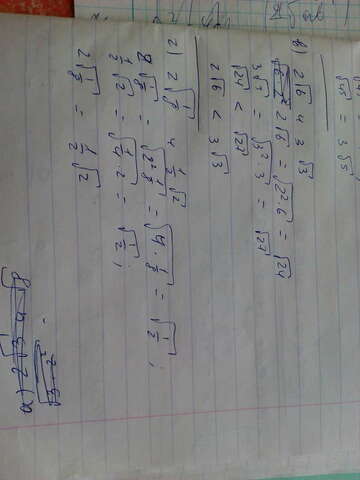 √45 = 3√5
в) 2√6 и 3√3
2√6 = √2²·6 = √24
3√3 = √3²·3 = √27
√24 < √27
2√6 < 3√3
г) 2√1/8 и 1/2√2
2√1/8 = √2²·1/8 = √4·1/8 = √1/2;
1/2√2 = √1/4·2 = √1/2;
2√1/8 = 1/2√2